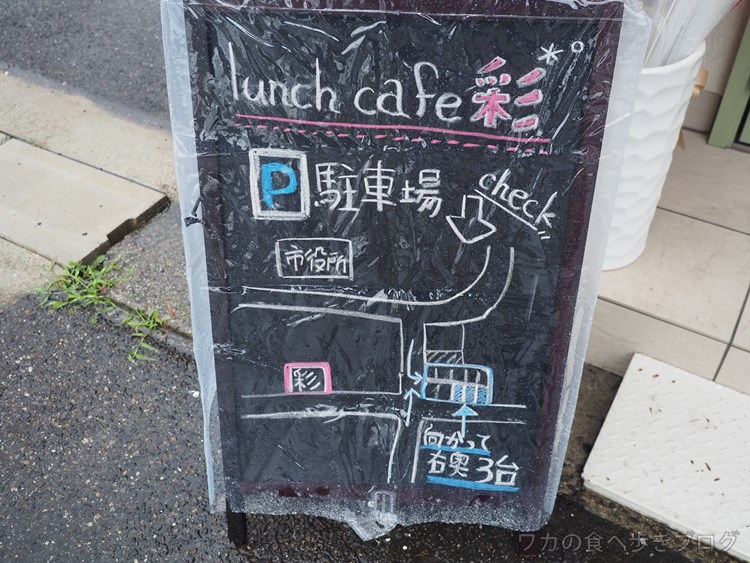 lunch cafe 彩
P 駐車場
check
市役所
彩
向かって
右奥 3台
ワカの食べ歩きブログ